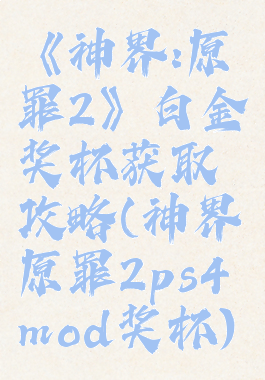 《神界:原
罪2》白金
奖杯获取
攻略(神界
原罪2ps4
mod奖杯)